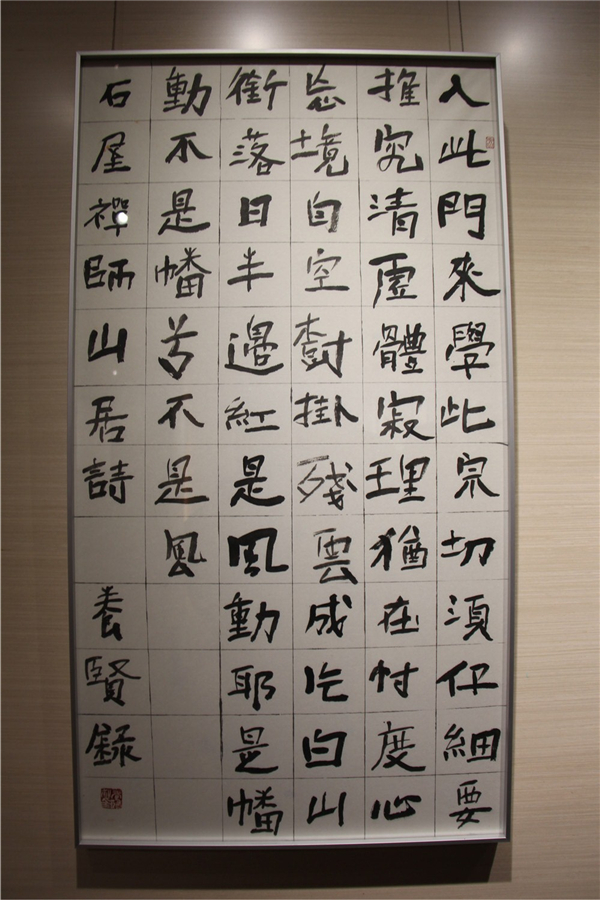 入此門來學此宗切須仔細要
推究清虛體寂理猶在忖度心
忘境自空樹掛殘雲成片白山
銜落日半邊紅是風動耶是幡
動不是幡兮不是風
石屋禪師山居詩 養賢錄